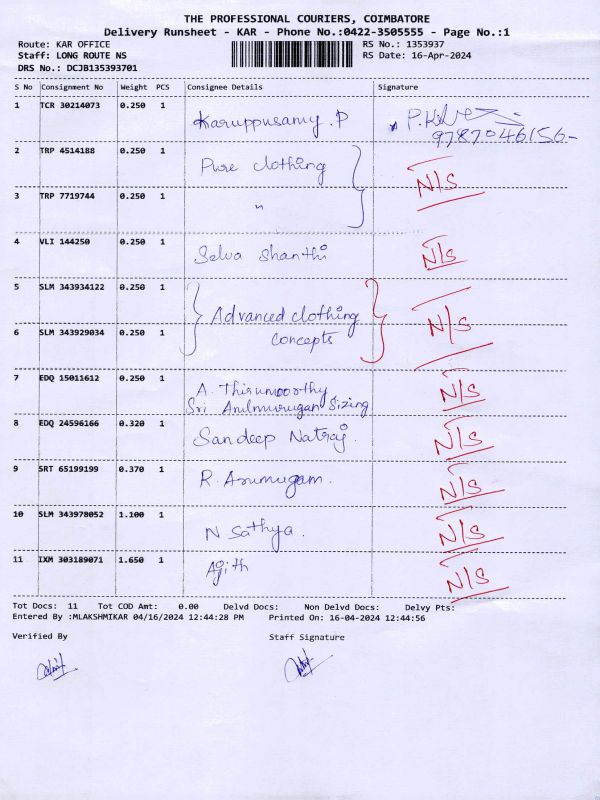 THE PROFESSIONAL COURIERS, COIMBATORE
Delivery Runsheet - KAR - Phone No.:0422-3505555 - Page No.:1
Route: KAR OFFICE RS No.: 1353937
Staff: LONG ROUTE NS RS Date: 16-Apr-2024
DRS No.: DCJB135393701
S No Consignment No Weight PCS Consignee Details Signature
1 TCR 30214073 0.250 1 Karuppusamy .P
9787046156-
2 TRP 4514188 0.250 1 Pure clothing N/S
3 TRP 7719744 0.250 1 "
4 VLI 144250 0.250 1 Selva Shanthi N/S
5 SLM 343934122 0.250 1 Advanced clothing N/S
6 SLM 343929034 0.250 1 concepts
7 EDQ 15011612 0.250 1 A. Thirumoorthy N/S
Sri Arulmurugan Sizing
8 EDQ 24596166 0.320 1 Sandeep Natraj. N/S
9 SRT 65199199 0.370 1 R. Arumugam. N/S
10 SLM 343978052 1.100 1 N Sathya. N/S
11 IXM 303189071 1.650 1 Ajith N/S
Tot Docs: 11 Tot COD Amt: 0.00 Delvd Docs: Non Delvd Docs: Delvy Pts:
Entered By :MLAKSHMIKAR 04/16/2024 12:44:28 PM Printed On: 16-04-2024 12:44:56
Verified By Staff Signature